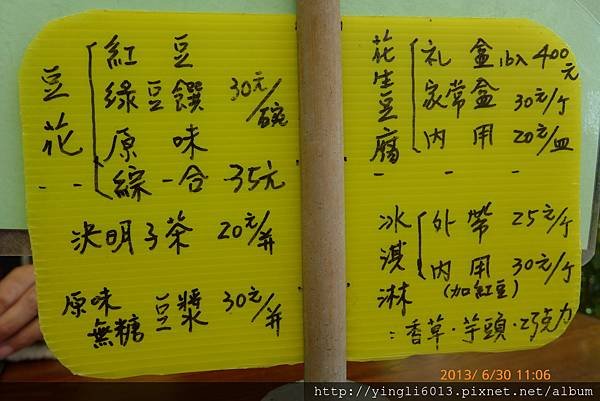 豆花
紅豆
綠豆饌 30元/碗
原味
綜一合 35元
決明子茶 20元/并
原味
無糖 豆漿 30元/并
花生豆腐
礼盒 16入 400元
家常盒 30元/个
內用 20元/皿
冰淇淋
外帶 25元/个
內用 30元/个
(加紅豆)
:香草·芋頭·巧克力
2013/ 6/30 11:06
http://yingli6013.pixnet.net/album